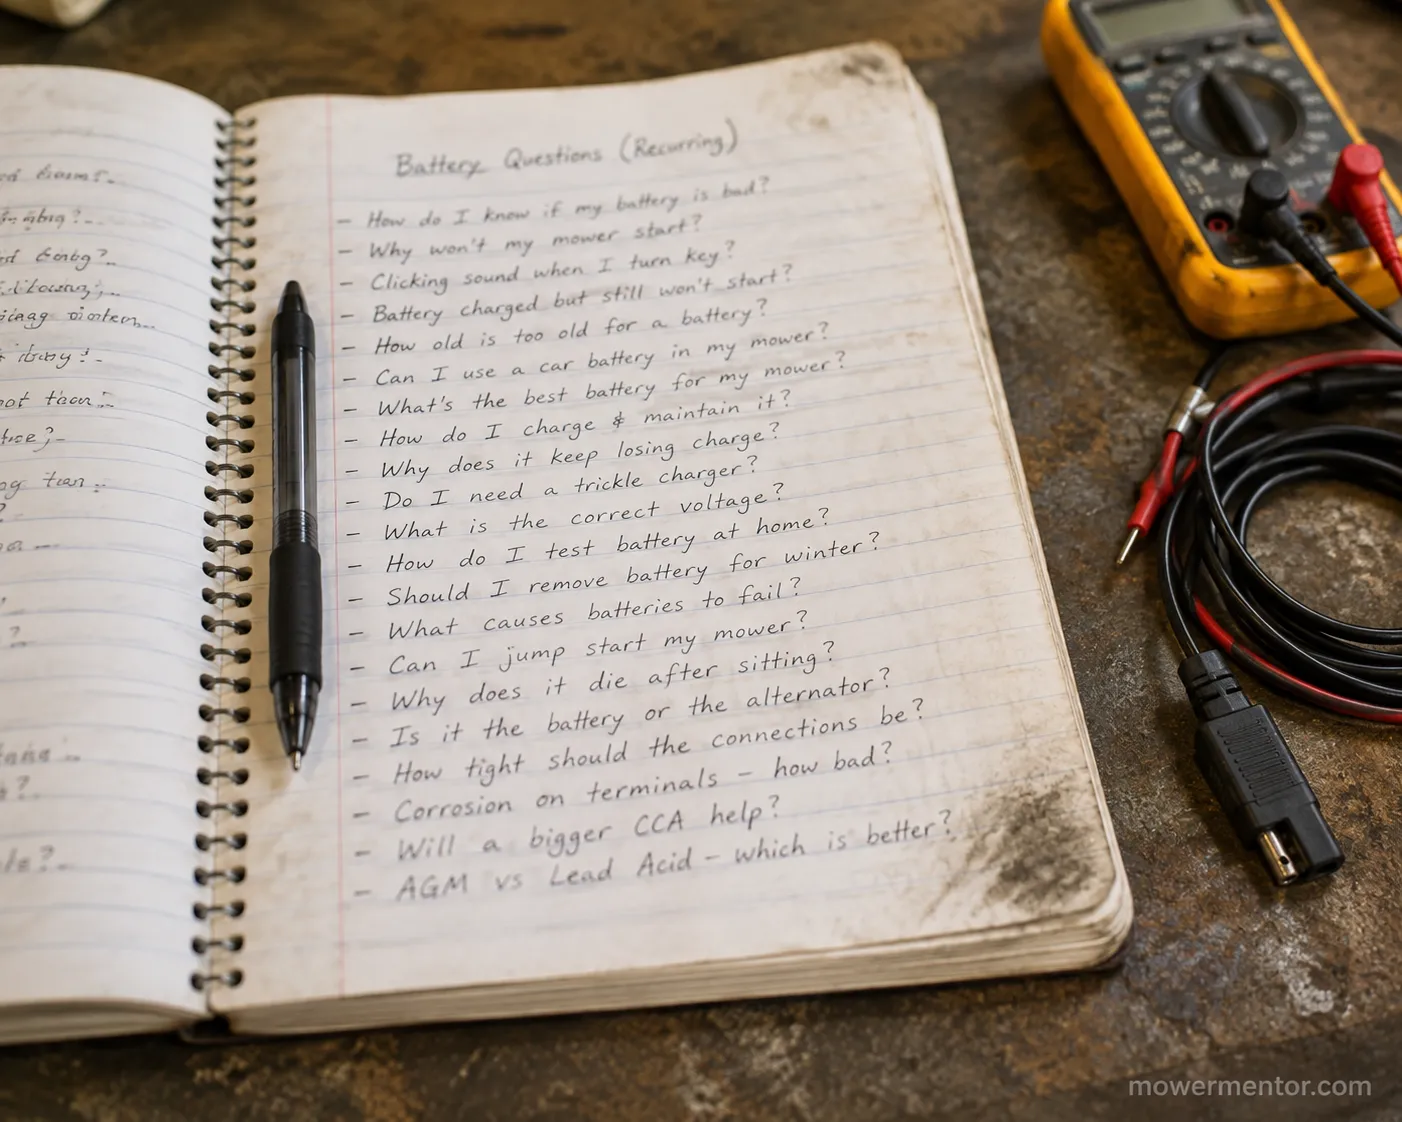 Battery Questions (Recurring)
- How do I know if my battery is bad?
- Why won't my mower start?
- Clicking sound when I turn key?
- Battery charged but still won't start?
- How old is too old for a battery?
- Can I use a car battery in my mower?
- What's the best battery for my mower?
- How do I charge & maintain it?
- Why does it keep losing charge?
- Do I need a trickle charger?
- What is the correct voltage?
- How do I test battery at home?
- Should I remove battery for winter?
- What causes batteries to fail?
- Can I jump start my mower?
- Why does it die after sitting?
- Is it the battery or the alternator?
- How tight should the connections be?
- Corrosion on terminals - how bad?
- Will a bigger CCA help?
- AGM vs Lead Acid - which is better?
mowermentor.com